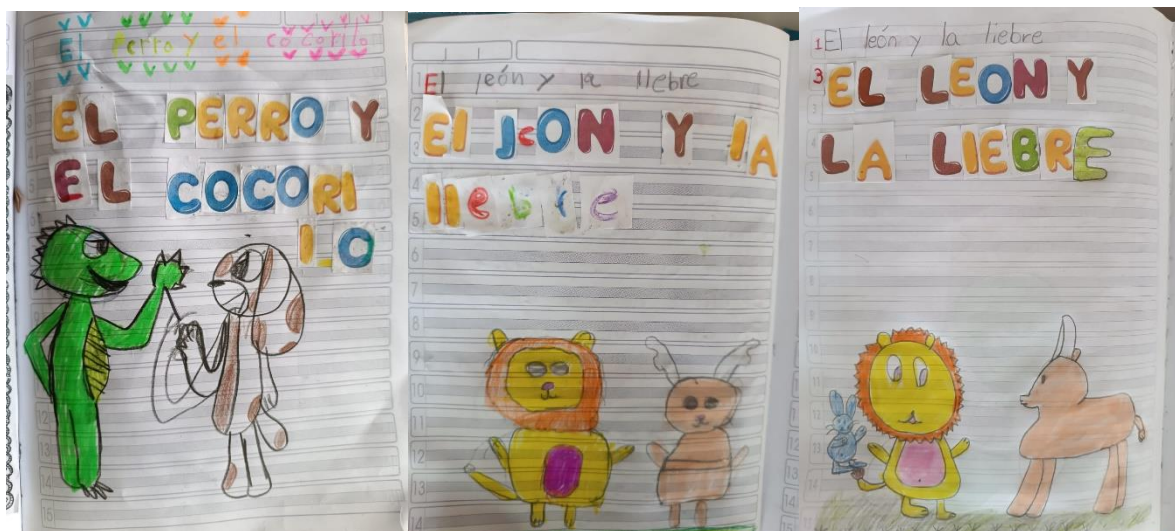 El Perro y el cocorilo
EL PERRO Y
EL COCORI
LO
El león y la llebre
El JcON Y lA
llebre
1 El león y la liebre
3 EL LEON Y
LA LIEBRE